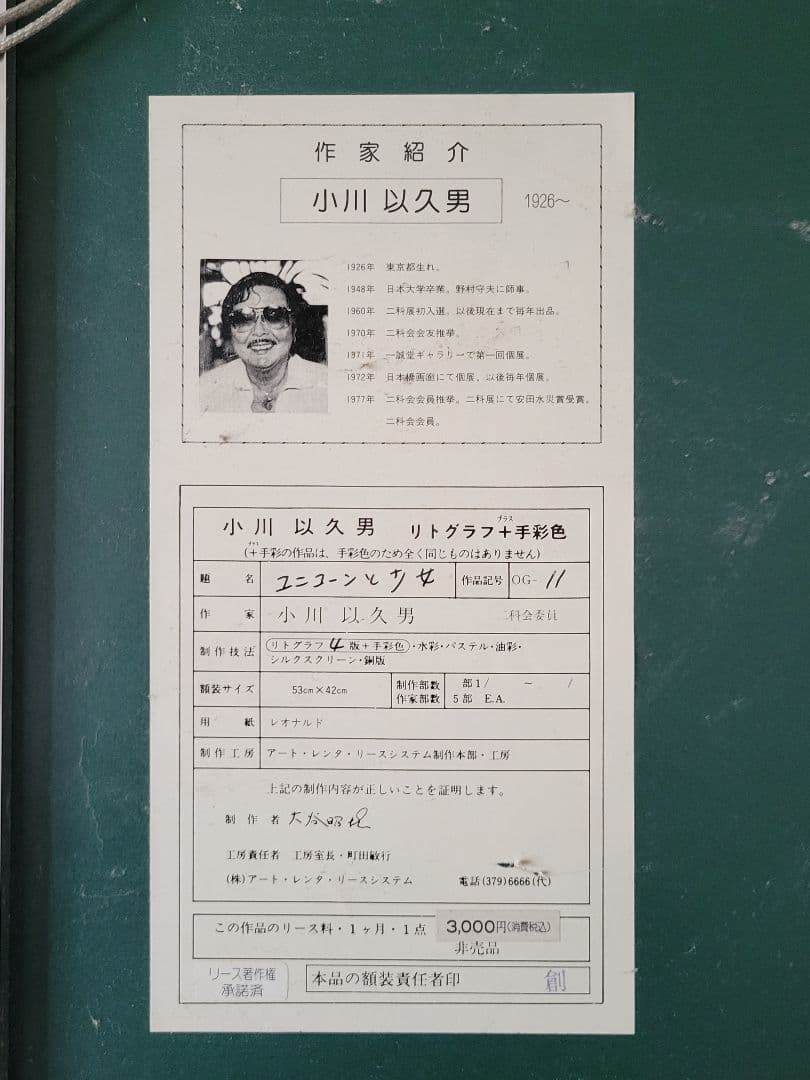 作家紹介
小川 以久男 1926〜
1926年 東京都生れ。
1948年 日本大学卒業。野村守夫に師事。
1960年 二科展初入選。以後現在まで毎年出品。
1970年 二科会会友推挙。
1971年 一誠堂ギャラリーで第一回個展。
1972年 日本橋画廊にて個展、以後毎年個展。
1977年 二科会会員推挙。二科展にて安田火災賞受賞。
二科会会員。
小川 以久男 リトグラフ+手彩色
プラス
(+手彩の作品は、手彩色のため全く同じものはありません)
プラス
題名 ユニコーンと少女 作品記号 OG-11
作家 小川 以久男 二科会委員
制作技法 リトグラフ4版+手彩色・水彩・パステル・油彩・
シルクスクリーン・銅版
額装サイズ 53cm×42cm 制作部数 部1/ 〜 /
作家部数 5部 E.A.
用紙 レオナルド
制作工房 アート・レンタ・リースシステム制作本部・工房
上記の制作内容が正しいことを証明します。
制作者 大谷
工房責任者 工房室長・町田敏行
(株)アート・レンタ・リースシステム 電話(379)6666(代)
この作品のリース料・1ヶ月・1点 3,000円(消費税込)
非売品
リース著作権
承諾済
本品の額装責任者印 創